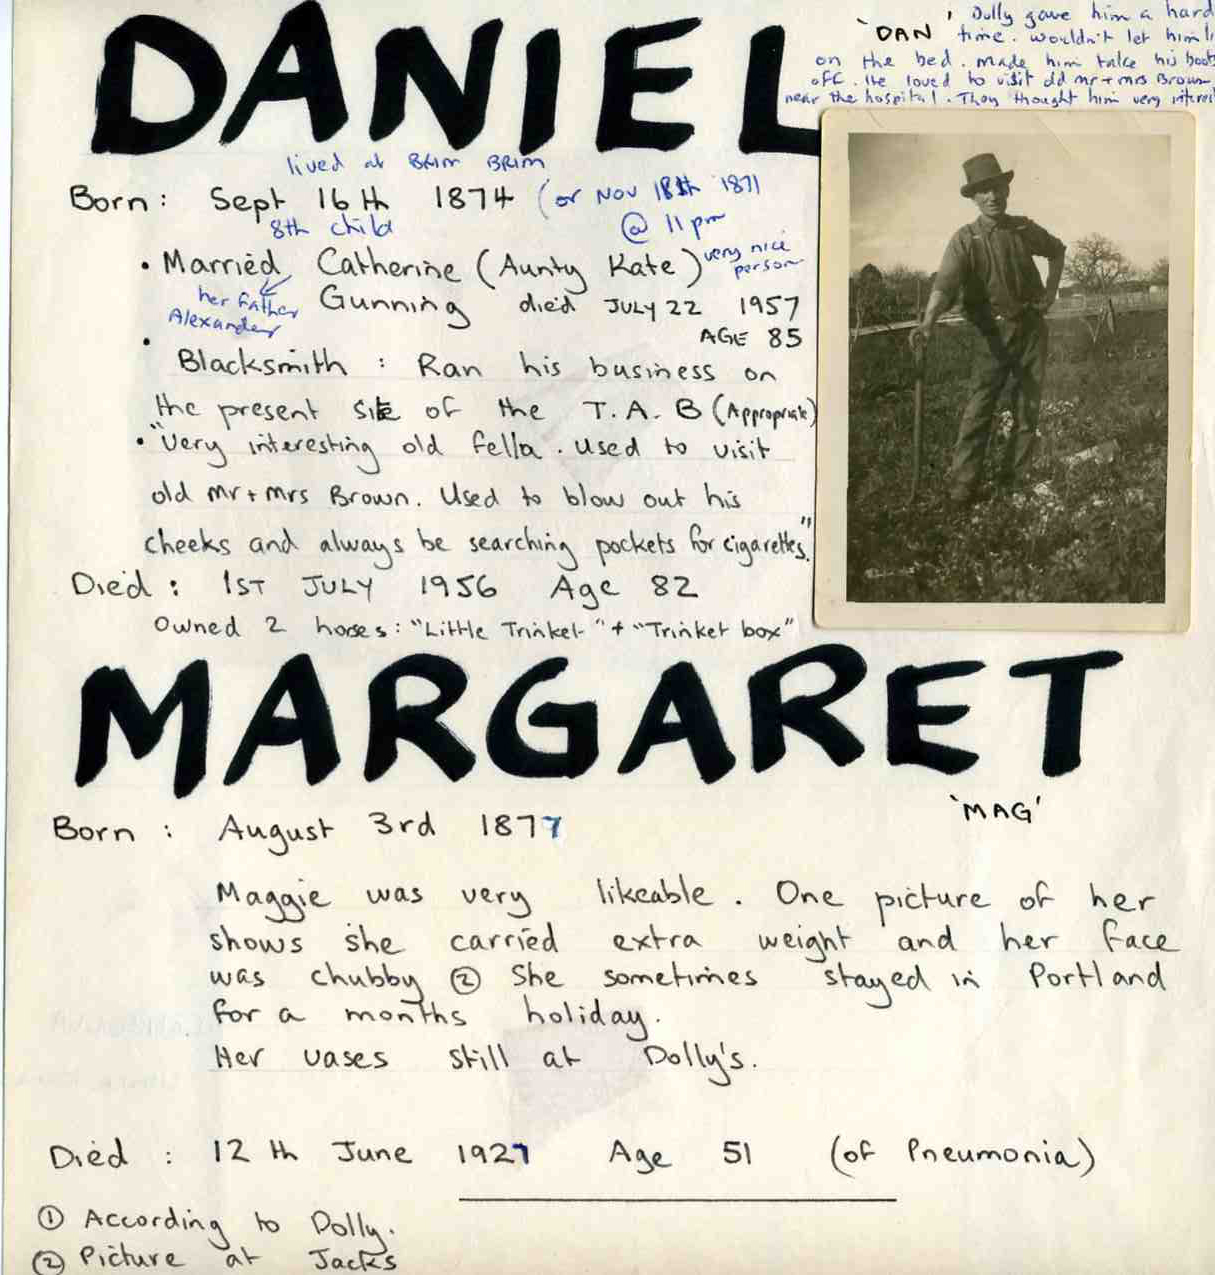 DANIEL
'DAN', Dolly gave him a hard
time. wouldn't let him
on the bed. made him take his boots
off. He loved to visit old mr + mrs Brown
near the hospital. They thought him very
lived at BRIM BRIM
Born : Sept 16th 1874 (or Nov 18th 1871
8th child @ 11pm
• Married Catherine (Aunty Kate) very nice
person
her father Gunning died JULY 22 1957
Alexander
AGE 85
• Blacksmith : Ran his business on
the present site of the T.A.B (Appropriate)
• "Very interesting old fella. used to visit
old mr + mrs Brown. Used to blow out his
cheeks and always be searching pockets for cigarettes."
Died : 1ST JULY 1956 Age 82
Owned 2 horses : "Little Trinket" + "Trinket box"
MARGARET
'MAG'
Born : August 3rd 1877
Maggie was very likeable. One picture of her
shows she carried extra weight and her face
was chubby ② She sometimes stayed in Portland
for a months holiday.
Her vases still at Dolly's.
Died : 12th June 1927 Age 51 (of Pneumonia)
① According to Dolly.
② Picture at Jacks